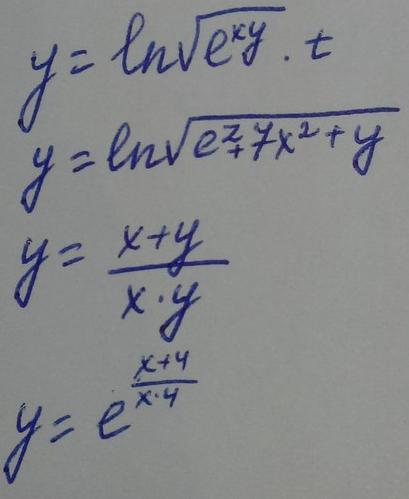 y = ln√(e^(xy)) · t
y = ln√(e^z + 7x² + y)
y = (x+y)/(x·y)
y = e^((x+4)/(x·4))